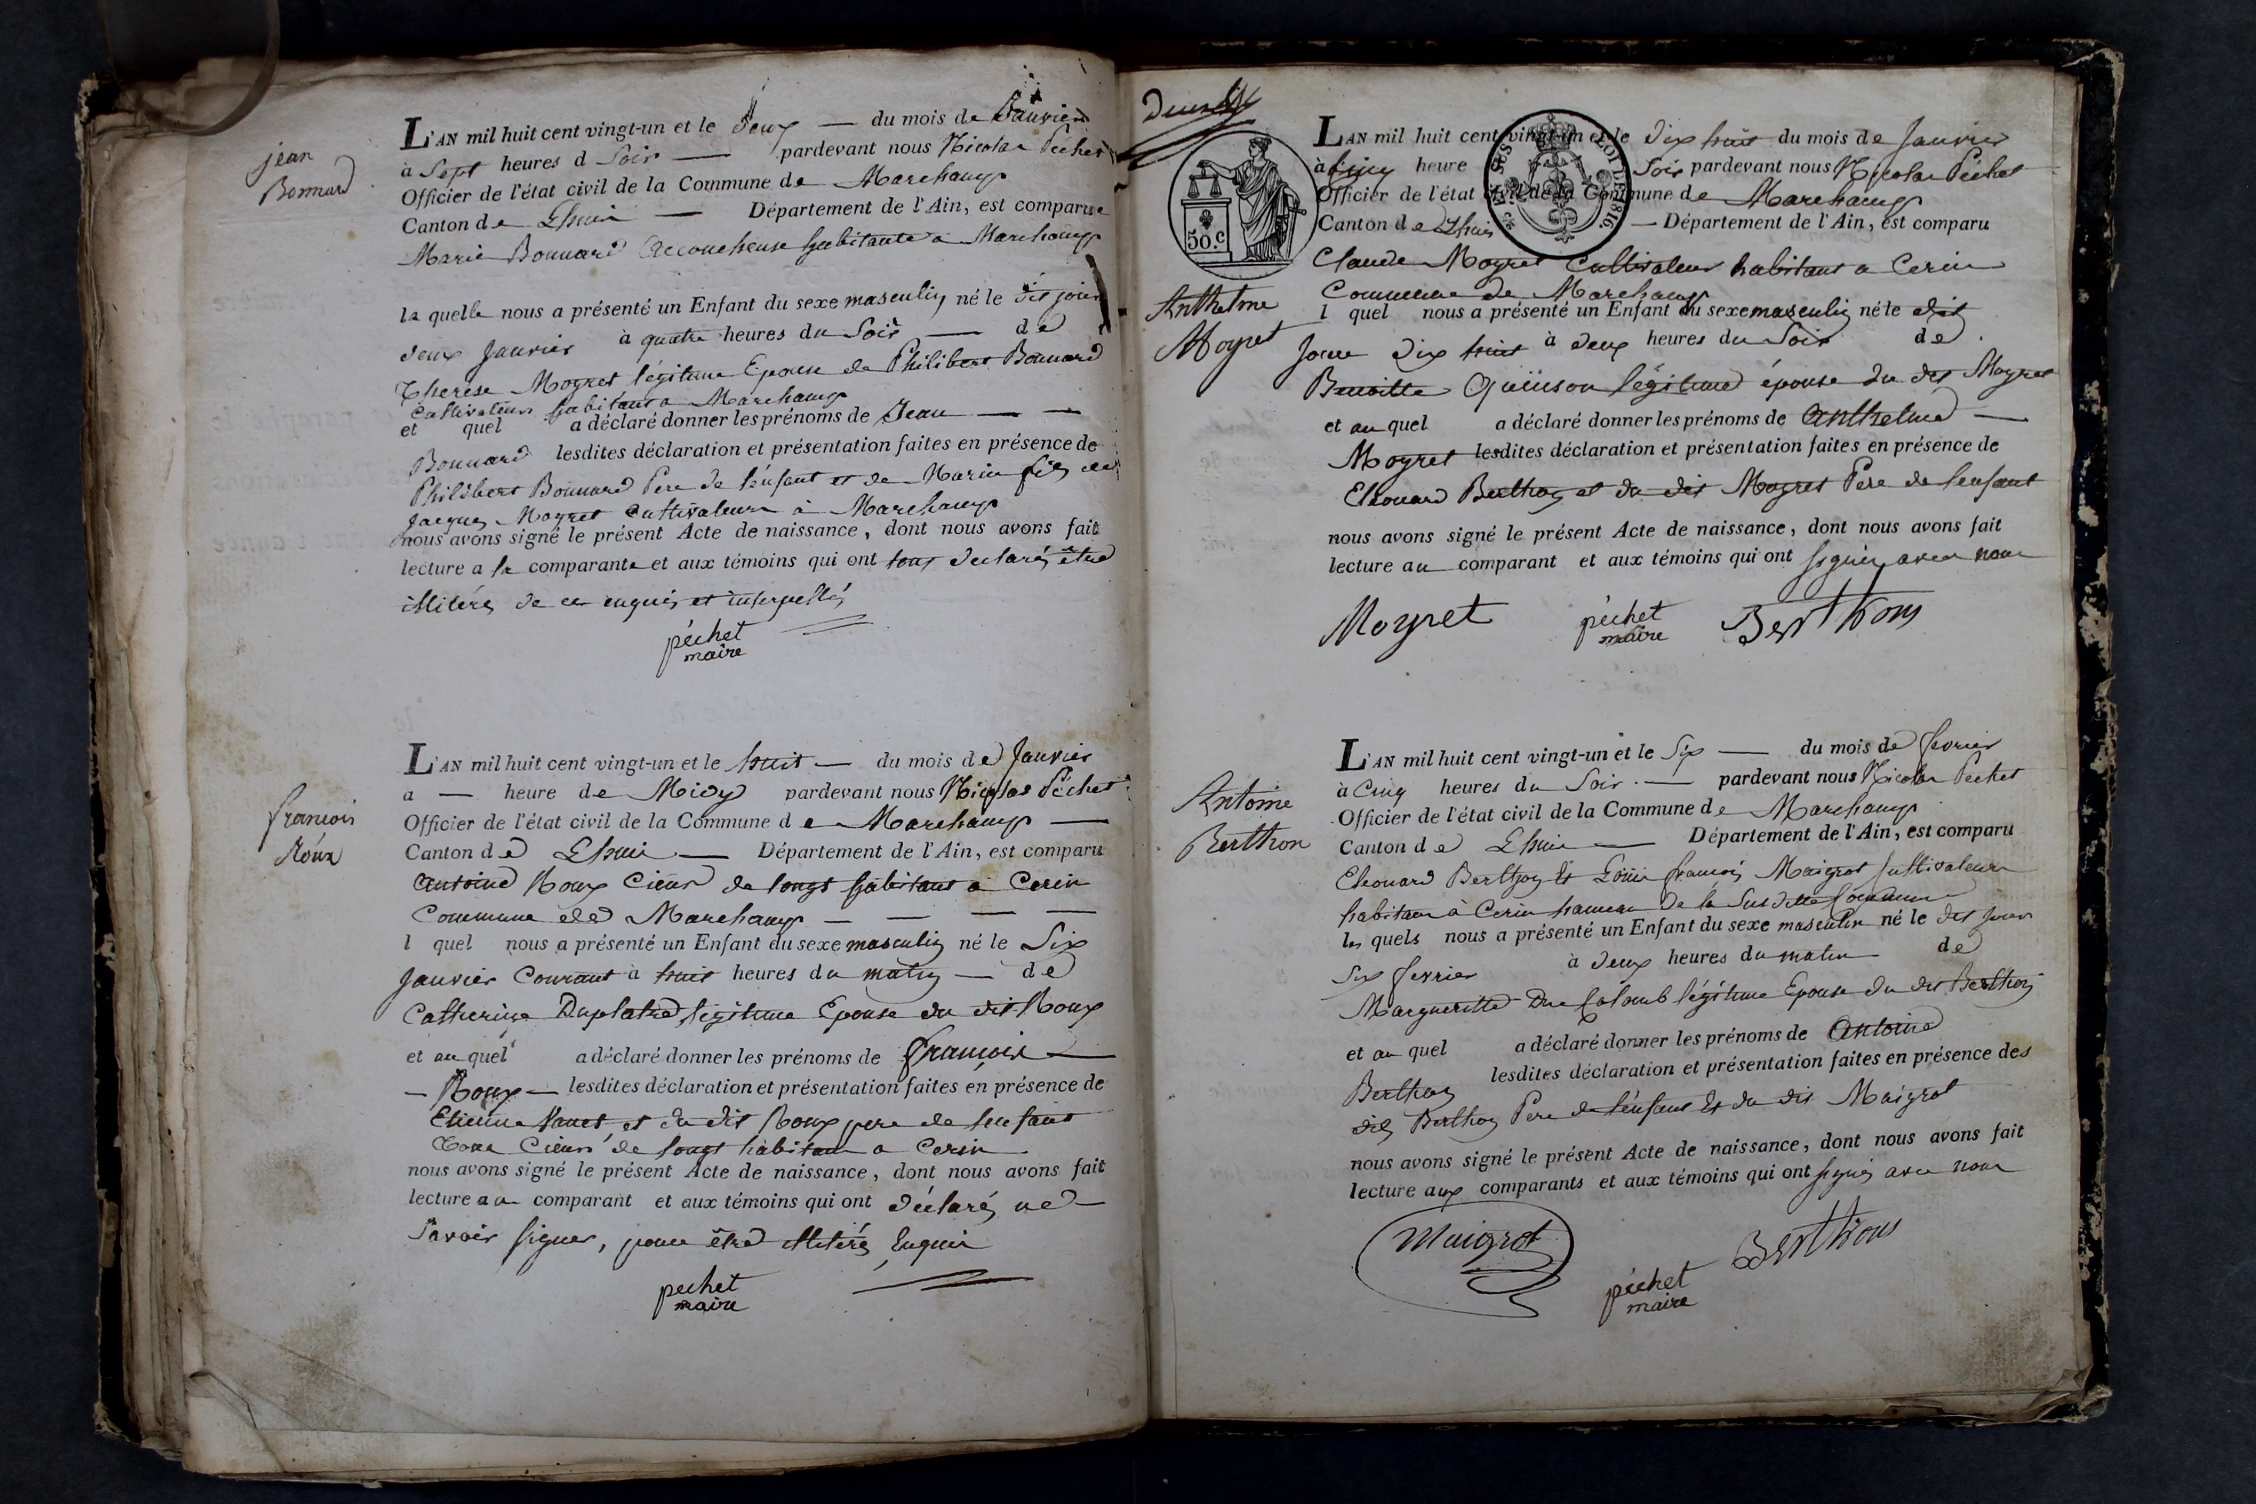 jean
Bonnard
L'AN mil huit cent vingt-un et le deux — du mois de Janvier
à Sept heures d Soir — pardevant nous Nicolas Péchet
Officier de l'état civil de la Commune de Marchamp
Canton de Lhuis — Département de l'Ain, est comparue
Marie Bonnard accoucheuse habitante à Marchamp
la quelle nous a présenté un Enfant du sexe masculin né le dit jour
deux Janvier à quatre heures du Soir — de
Therese Moyret légitime Epouse de Philibert Bonnard
Cultivateur habitant a Marchamp
et quel a déclaré donner les prénoms de Jean — —
Bonnard lesdites déclaration et présentation faites en présence de
Philibert Bonnard Pere de l'énfant et de Marin fils de
Jacques Moyret Cultivateurs à Marchamp
nous avons signé le présent Acte de naissance, dont nous avons fait
lecture a la comparante et aux témoins qui ont tous déclarés être
illitérés de ce enquis et interpellés
péchet
maire
francois
Roux
L'AN mil huit cent vingt-un et le huit — du mois de Janvier
a — heure de Midy pardevant nous Nicolas Péchet
Officier de l'état civil de la Commune de Marchamp —
Canton de Lhuis — Département de l'Ain, est comparu
antoine Roux Cieur de longt habitant a Cerin
Commune de Marchamp — — — —
l quel nous a présenté un Enfant du sexe masculin né le Six
Janvier Courant à huit heures du matin — de
Catherine Duplatre légitime Epouse du dit Roux
et au quel a déclaré donner les prénoms de francois —
— Roux — lesdites déclaration et présentation faites en présence de
Etienne et du dit Roux pere de lenfant
Cieurs de longt habitant a Cerin
nous avons signé le présent Acte de naissance, dont nous avons fait
lecture au comparant et aux témoins qui ont déclarés ne
Savoir signer, pour être illitérés Enquis
pechet
maire
50.c
LOI DE 1816
Anthelme
Moyret
L'AN mil huit cent vingt-un et le dix huit du mois de Janvier
à Cinq heure Soir pardevant nous Nicolas Péchet
Officier de l'état civil de la Commune de Marchamp
Canton de Lhuis — Département de l'Ain, est comparu
Claude Moyret Cultivateur habitant a Cerin
Commune de Marchamp
l quel nous a présenté un Enfant du sexe masculin né le dit
Jour dix huit à deux heures du Soir de
Benoitte Quinson légitime épouse du dit Moyret
et au quel a déclaré donner les prénoms de Anthelme —
Moyret lesdites déclaration et présentation faites en présence de
Eléouard Berthon et du dit Moyret Pere de lenfant
nous avons signé le présent Acte de naissance, dont nous avons fait
lecture au comparant et aux témoins qui ont signés avec nous
Moyret péchet maire Berthon
Antoine
Berthon
L'AN mil huit cent vingt-un et le Six — du mois de fevrier
à Cinq heures du Soir — pardevant nous Nicolas Pechet
Officier de l'état civil de la Commune de Marchamp
Canton de Lhuis — Département de l'Ain, est comparu
Eleouard Berthon Et Louis francois Maigrot Cultivateurs
habitans à Cerin hameau de la Susditte Commune
les quels nous a présenté un Enfant du sexe masculin né le dit jour
Six fevrier à deux heures du matin de
Margueritte Du Colomb légitime Epouse du dit Berthon
et au quel a déclaré donner les prénoms de Antoine
Berthon lesdites déclaration et présentation faites en présence des
dits Berthon Pere de l'énfant Et du dit Maigrot
nous avons signé le présent Acte de naissance, dont nous avons fait
lecture aux comparants et aux témoins qui ont signés avec nous
Maigrot Berthon
péchet
maire